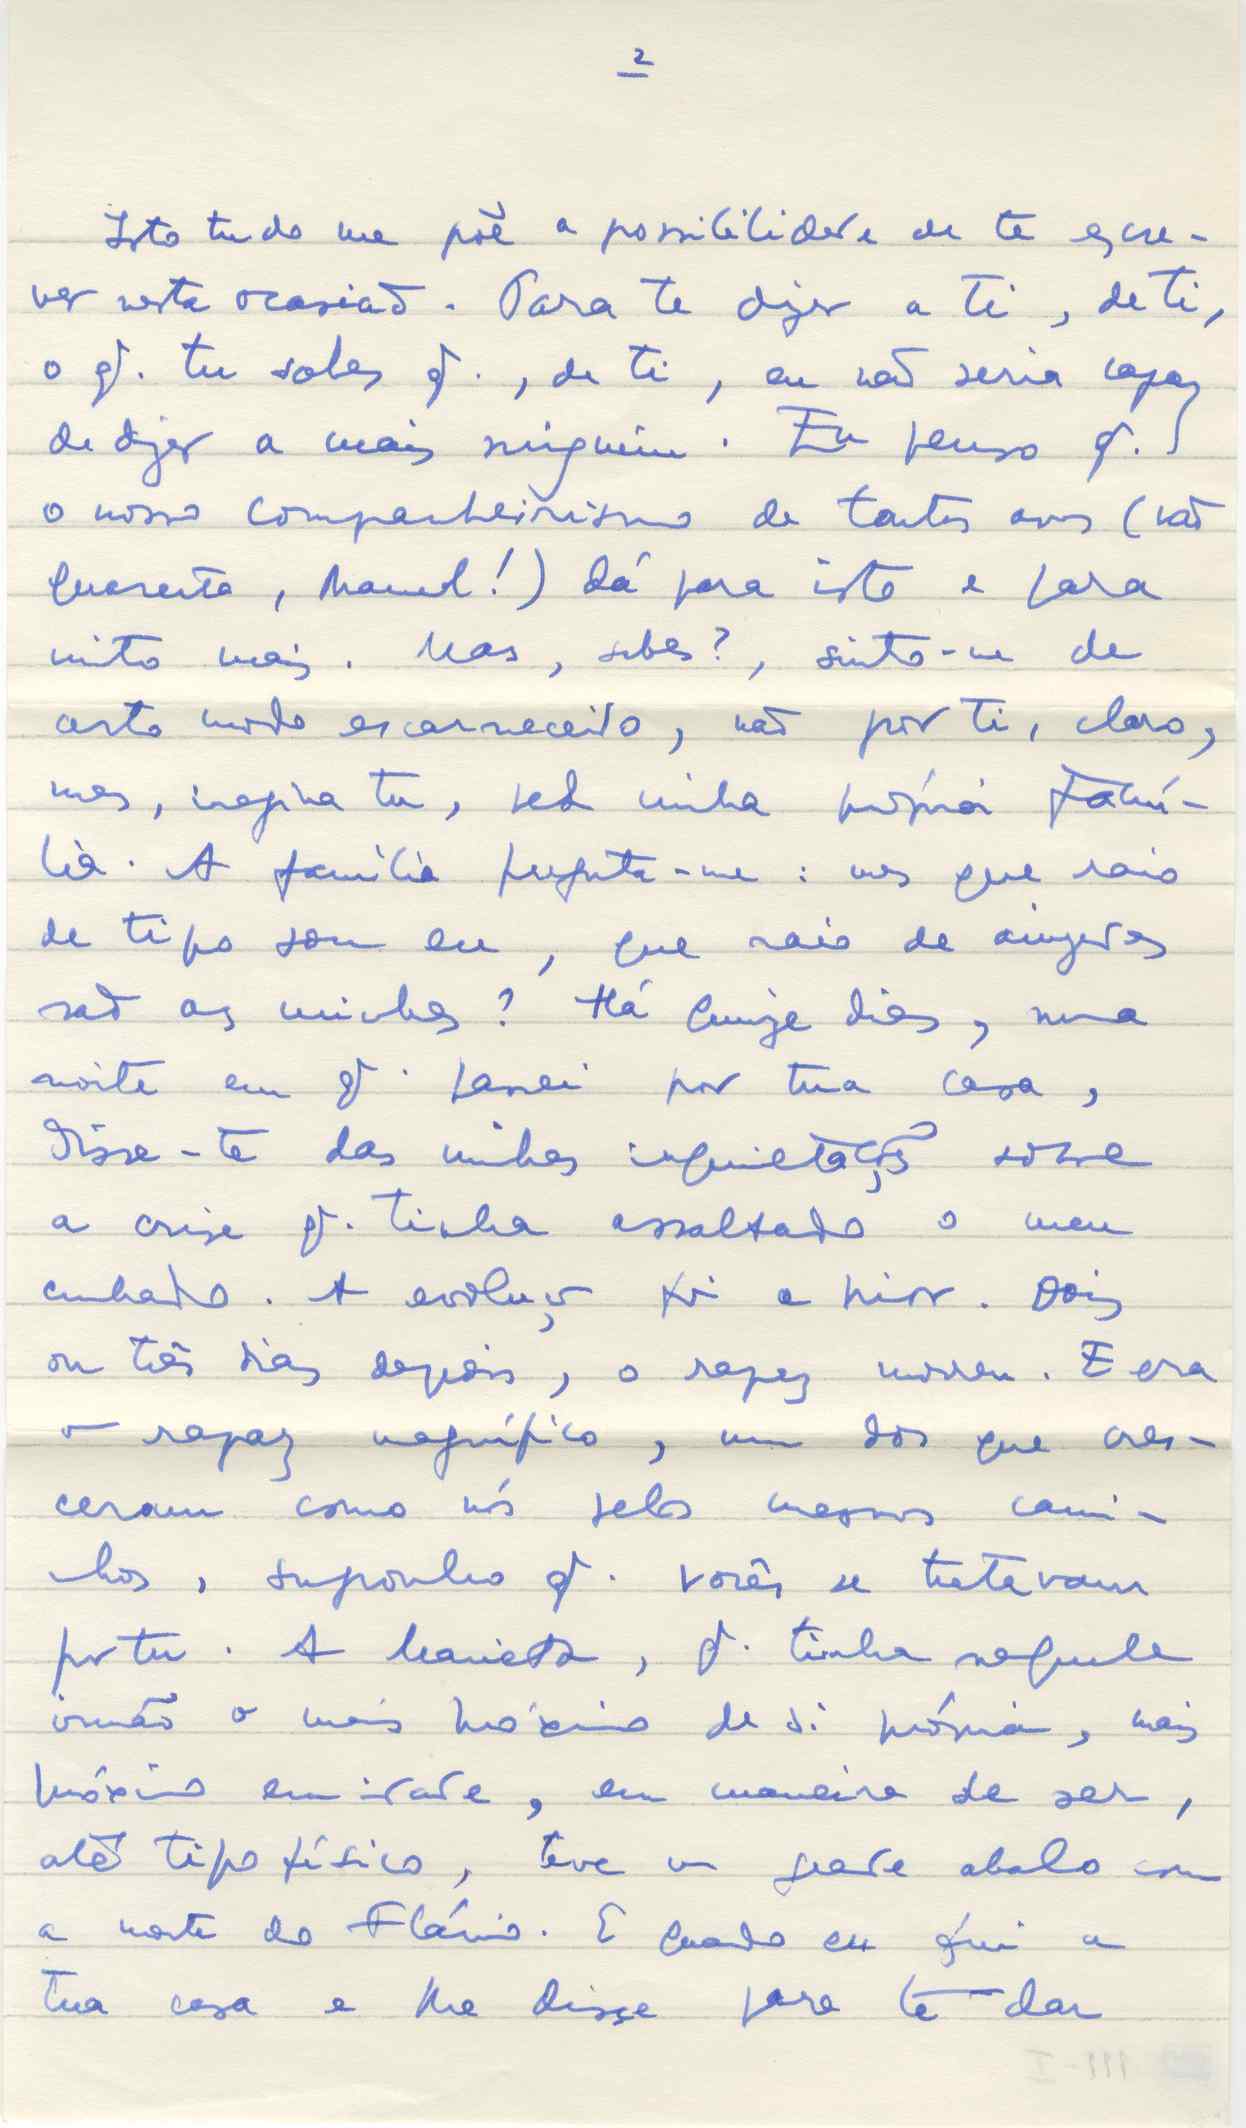 2
Isto tudo me põe a possibilidade de te escre-
ver nesta ocasião. Para te dizer a ti, de ti,
o q. tu sabes q., de ti, eu não seria capaz
de dizer a mais ninguém. Eu penso q.
o nosso companheirismo de tantos anos (vão
quarenta, Manuel!) dá para isto e para
muito mais. Mas, sabes?, sinto-me de
certo modo escarnecido, não por ti, claro,
mas, imagina tu, pela minha própria Famí-
lia. A família pergunta-me: mas que raio
de tipo sou eu, que raio de amizades
são as minhas? Há quinze dias, numa
noite em q. passei por tua casa,
disse-te das minhas inquietações sobre
a crise q. tinha assaltado o meu
cunhado. A evolução foi a pior. Dois
ou três dias depois, o rapaz morreu. E era
um rapaz magnífico, um dos que cres-
ceram como nós pelos mesmos cami-
nhos, suponho q. vocês se tratavam
por tu. A Marieta, q. tinha naquele
irmão o mais próximo de si própria, mais
próximo em idade, em maneira de ser,
até tipo físico, teve um grande abalo com
a morte do Flávio. E quando eu fui a
tua casa e lhe disse para te dar
III-I